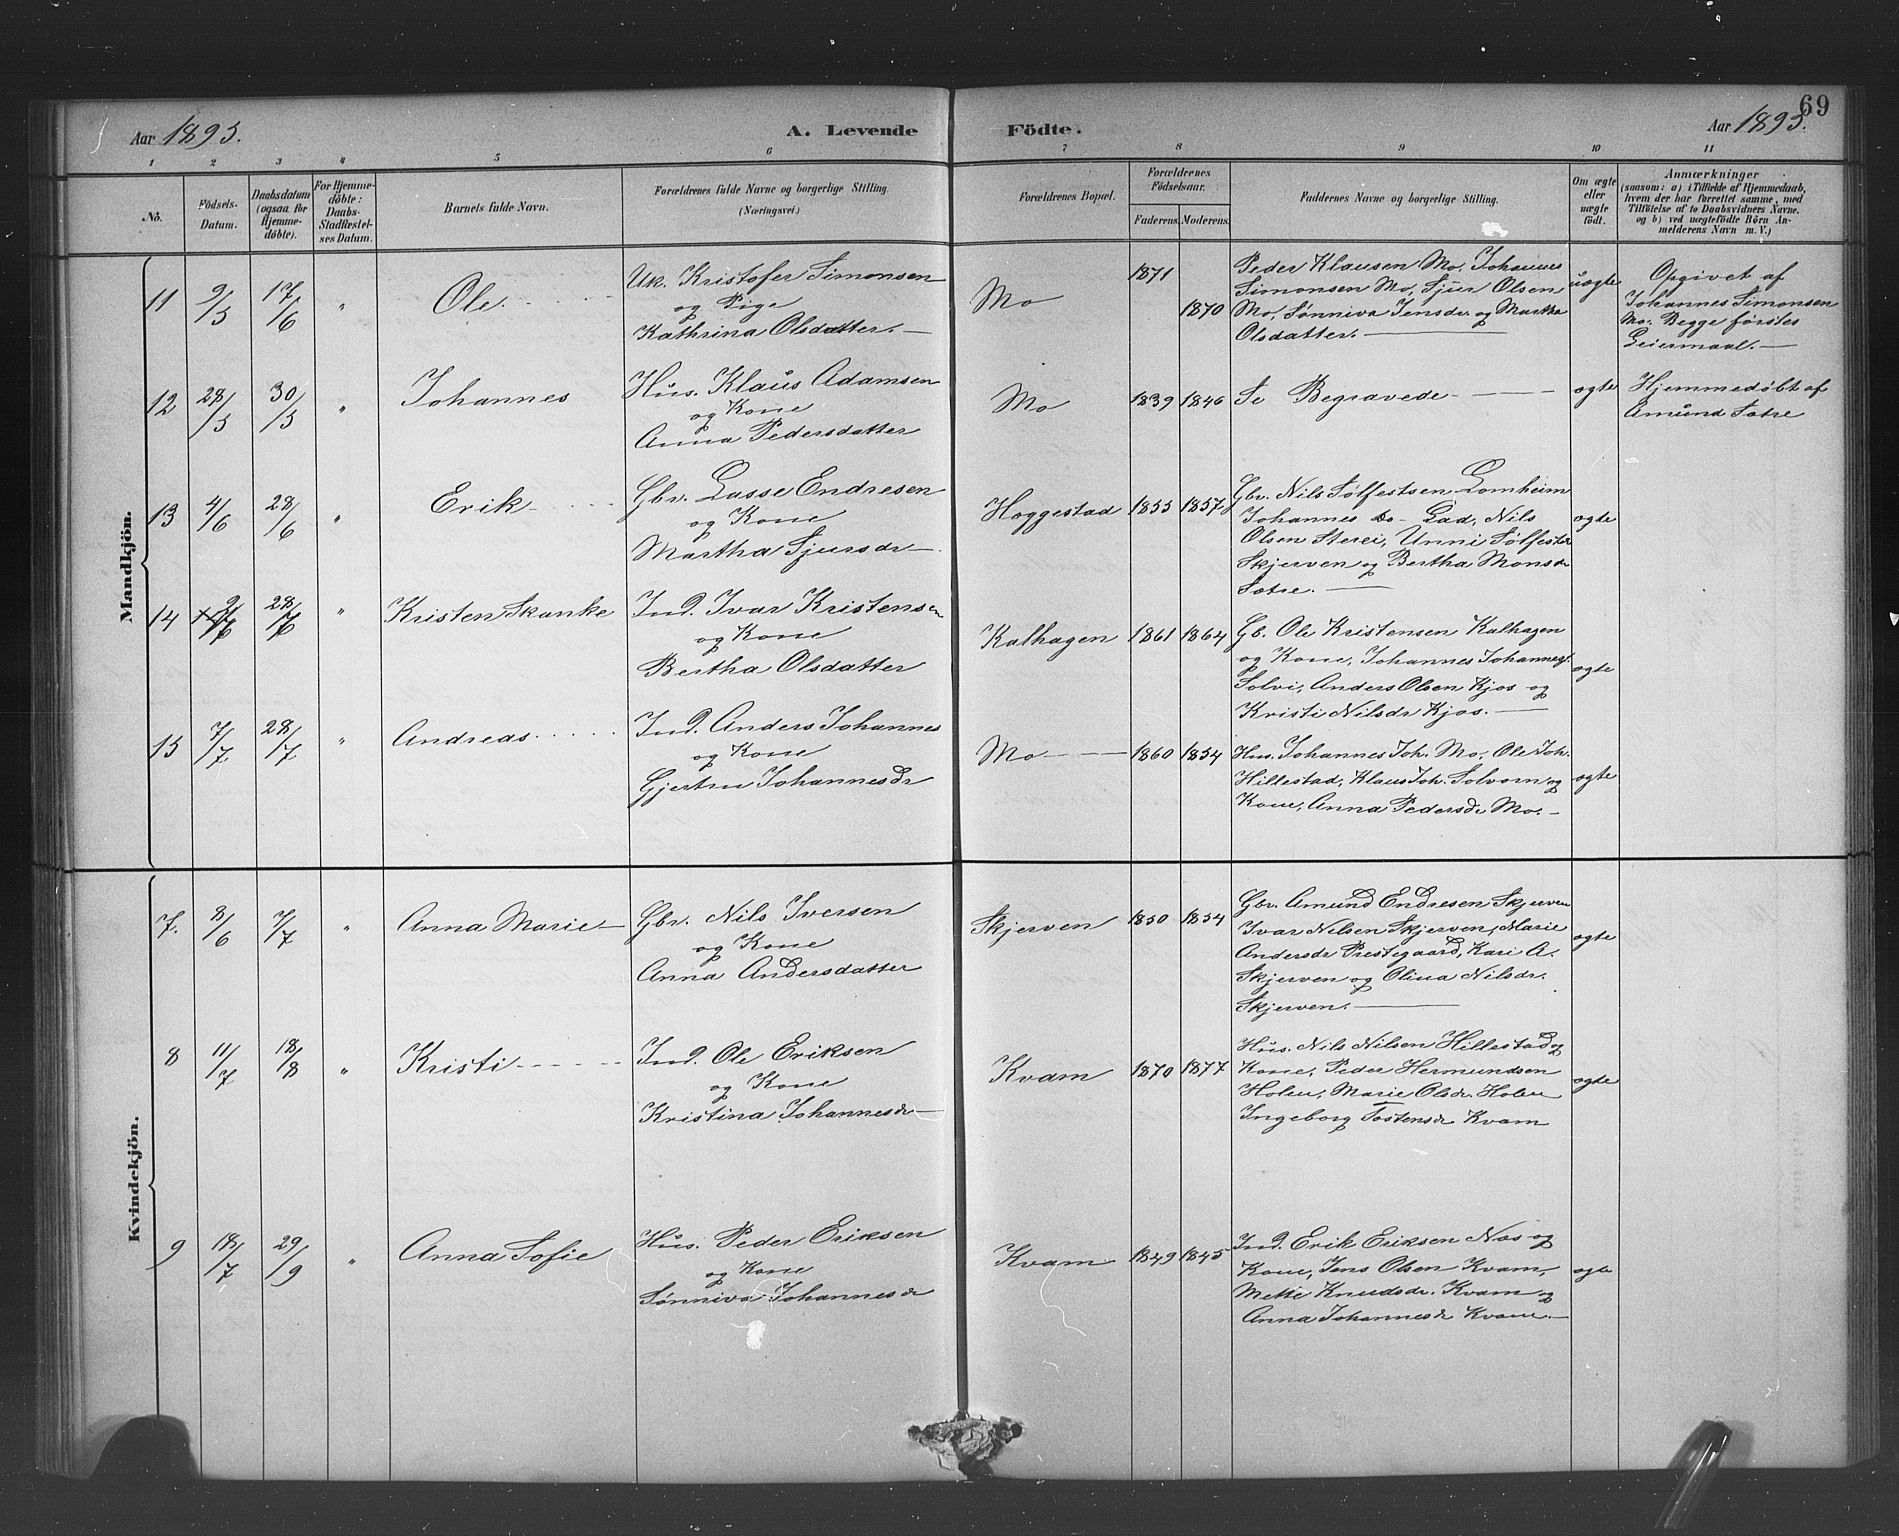 69
Aar 1893.
A. Levende
Födte.
Aar 1893.
1 2 3 4 5 6 7 8 9 10 11
No.
Födsels-
Datum.
Daabsdatum
(ogsaa for
Hjemme-
döbte).
For Hjemme-
döbte:
Daabs-
Stadfæstel-
ses Datum.
Barnets fulde Navn.
Forældrenes fulde Navne og borgerlige Stilling.
(Næringsvei.)
Forældrenes Bopæl.
Forældrenes
Födselsaar.
Faderens. Moderens.
Faddernes Navne og borgerlige Stilling.
Om ægte
eller
uægte
födt.
Anmærkninger
(saasom: a) i Tilfælde af Hjemmedaab,
hvem der har forrettet samme, med
Tilföielse af to Daabsvidners Navne,
og b) ved uægtefödte Börn An-
melderens Navn m. V.)
Mandkjön.
11 9/5 17/6 " Ole.
Uk. Kristofer Simonsen
og Pige
Kathrina Olsdatter.
Mo
1871
1870
Peder Klausen Mo, Johannes
Simonsen Mo, Sjur Olsen
Mo, Sønniva Jensdr og Martha
Olsdatter.
uægte
Opgivet af
Johannes Simonsen
Mo. Begge førstes
Leiermaal.
12 28/5 30/5 " Johannes
Hus. Klaus Adamsen
og Kone
Anna Pedersdatter
Mo
1839 1846
Se Begravede
ægte
Hjemmedøbt af
Amund Satre
13 4/6 28/6 " Erik
Gbr. Lasse Endresen
og Kone
Martha Sjursdr
Hæggestad 1855 1857
Gbr. Nils Sølfestsen Lomheim
Johannes do- Lad, Nils
Olsen Sterei, Unni Sølfestdr
Skjerven og Bertha Monsdr
Satre.
ægte
14 28/6 " Kristen Skanke
Ind. Ivar Kristensen
og Kone
Bertha Olsdatter
Kalhagen 1861 1864
Gb. Ole Kristensen Kalhagen
og Kone, Johannes Johannes.
Solvi, Anders Olsen Kjos og
Kristi Nilsdr Kjos.
ægte
15 7/7 28/7 " Andreas
Ind. Anders Johannes
og Kone
Gjertru Johannesdr
Mo 1860 1854
Hus. Johannes Joh. Mo, Ole Joh.
Hillestad, Klaus Joh. Solvorn og
Kone, Anna Pedersdr Mo.
ægte
Kvindekjön.
7. 8/6 7/7 " Anna Marie
Gbr. Nils Iversen
og Kone
Anna Andersdatter
Skjerven 1850 1854
Gbr. Amund Endresen Skjerven
Ivar Nilsen Skjerven, Marie
Andersdr Prestegaard, Kari A.
Skjerven og Olina Nilsdr.
Skjerven.
ægte
8 11/7 18/8 " Kristi
Ind. Ole Eriksen
og Kone
Kristina Johannesdr
Kvam 1870 1877
Hus. Nils Nilsen Hillestad og
Kone, Peder Hermundsen
Holen, Marie Olsdr. Holen
Ingeborg Tostensdr Kvam
ægte
9 18/7 29/9 " Anna Sofie
Hus. Peder Eriksen
og Kone
Sønniva Johannesdr
Kvam 1849 1845
Ind. Erik Eriksen Nas og
Kone, Jens Olsen Kvam,
Mette Knudsdr. Kvam og
Anna Johannesdr Kvam.
ægte